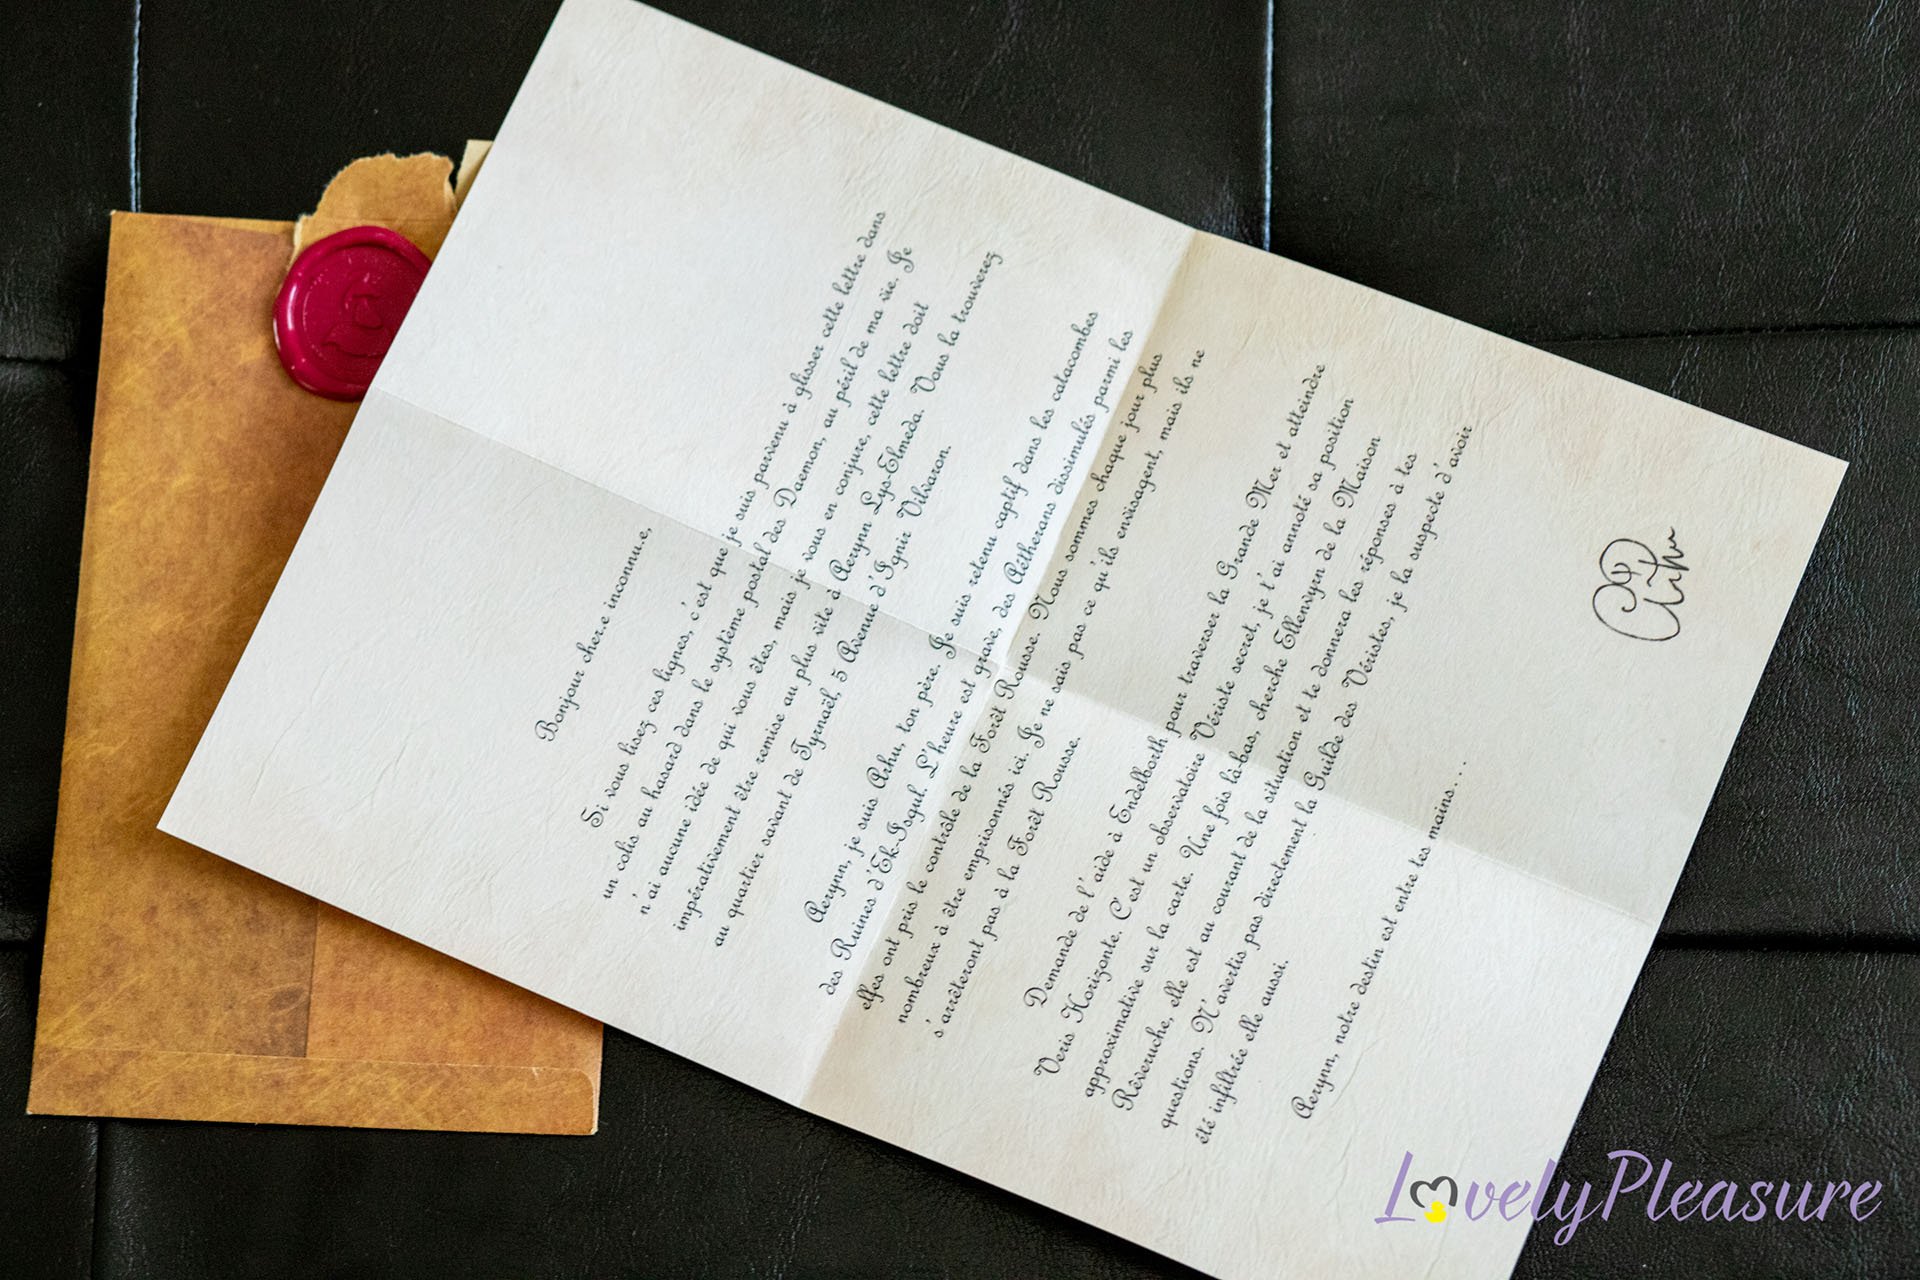 Bonjour cher.e inconnu.e,
Si vous lisez ces lignes, c'est que je suis parvenu à glisser cette lettre dans
un colis au hasard dans le système postal des Daemon, au péril de ma vie. Je
n'ai aucune idée de qui vous êtes, mais je vous en conjure, cette lettre doit
impérativement être remise au plus vite à Aerynn Lys-Elmeda. Vous la trouverez
au quartier savant de Tyrnaël, 5 Avenue d'Ignir Vilvaron.
Aerynn, je suis Arhu, ton père. Je suis retenu captif dans les catacombes
des Ruines d'Ek-Isgul. L'heure est grave, des Aétherans dissimulés parmi les
elfes ont pris le contrôle de la Forêt Rousse. Nous sommes chaque jour plus
nombreux à être emprisonnés ici. Je ne sais pas ce qu'ils envisagent, mais ils ne
s'arrêteront pas à la Forêt Rousse.
Demande de l'aide à Endelborth pour traverser la Grande Mer et atteindre
Veris Horizonte. C'est un observatoire Vériste secret, je t'ai annoté sa position
approximative sur la carte. Une fois là-bas, cherche Ellenvyrn de la Maison
Rêveruche, elle est au courant de la situation et te donnera les réponses à tes
questions. N'avertis pas directement la Guilde des Véristes, je la suspecte d'avoir
été infiltrée elle aussi.
Aerynn, notre destin est entre tes mains...
Arhu
LovelyPleasure